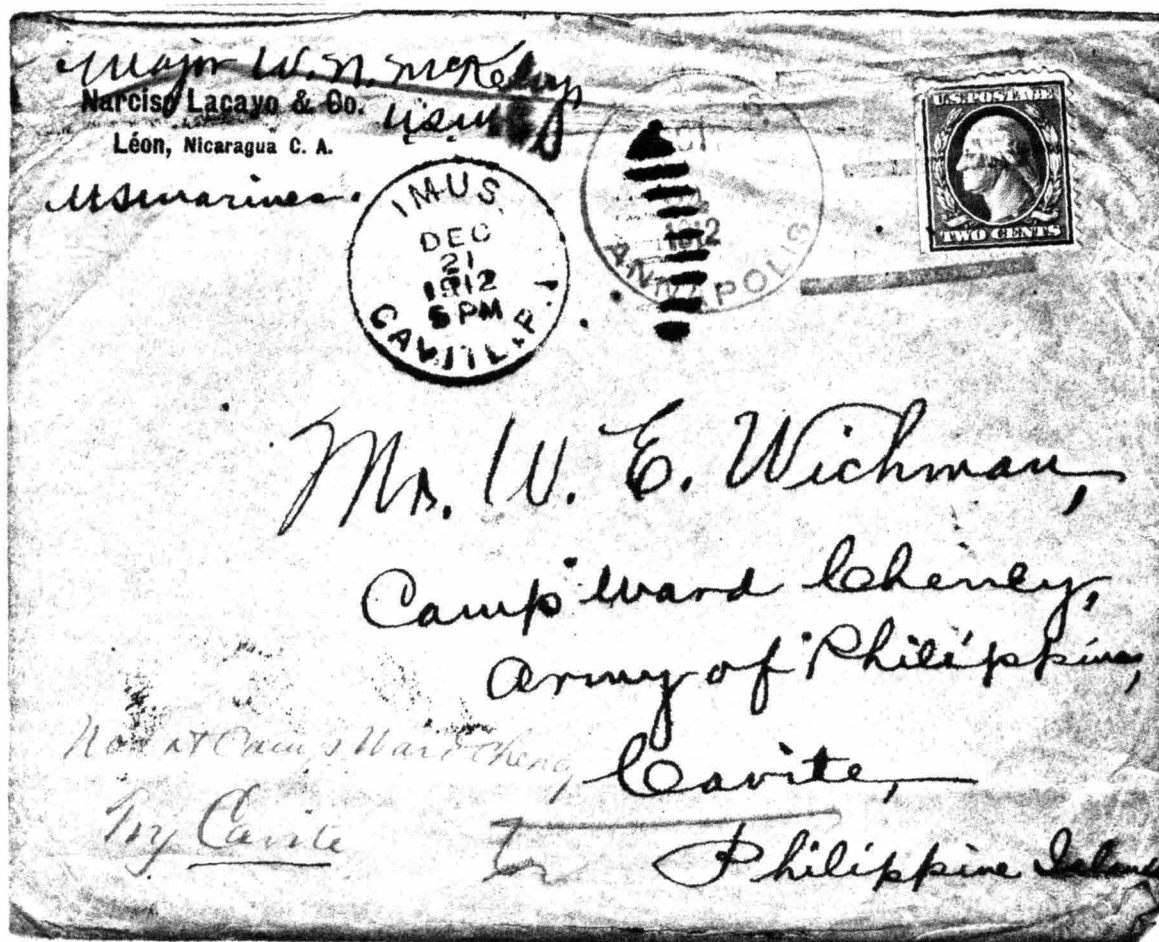 Major W. N. McKelvy
Narciso Lacayo & Co.
USMC
Léon, Nicaragua C. A.
US Marines.
IMUS,
DEC
21
1912
5 PM
CAVITE, P. I.
1912
ANNAPOLIS
U.S. POSTAGE
TWO CENTS
Mr. W. E. Wichman,
Camp Ward Cheney,
Army of Philippines,
Cavite,
Philippine Islands
Not at Camp Ward Cheney
Try Cavite